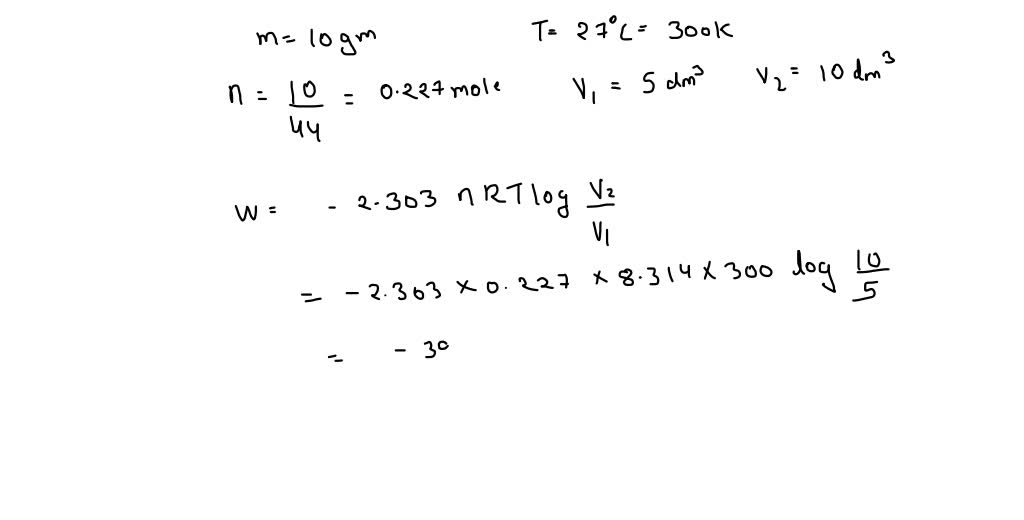 m= 10gm T= 27°C= 300K
n = 10/44 = 0.227mole V₁ = 5 dm³ V₂ = 10 dm³
W= - 2.303 nRTlog V₂/V₁
= - 2.303 × 0.227 × 8.314 × 300 log 10/5
= - 30